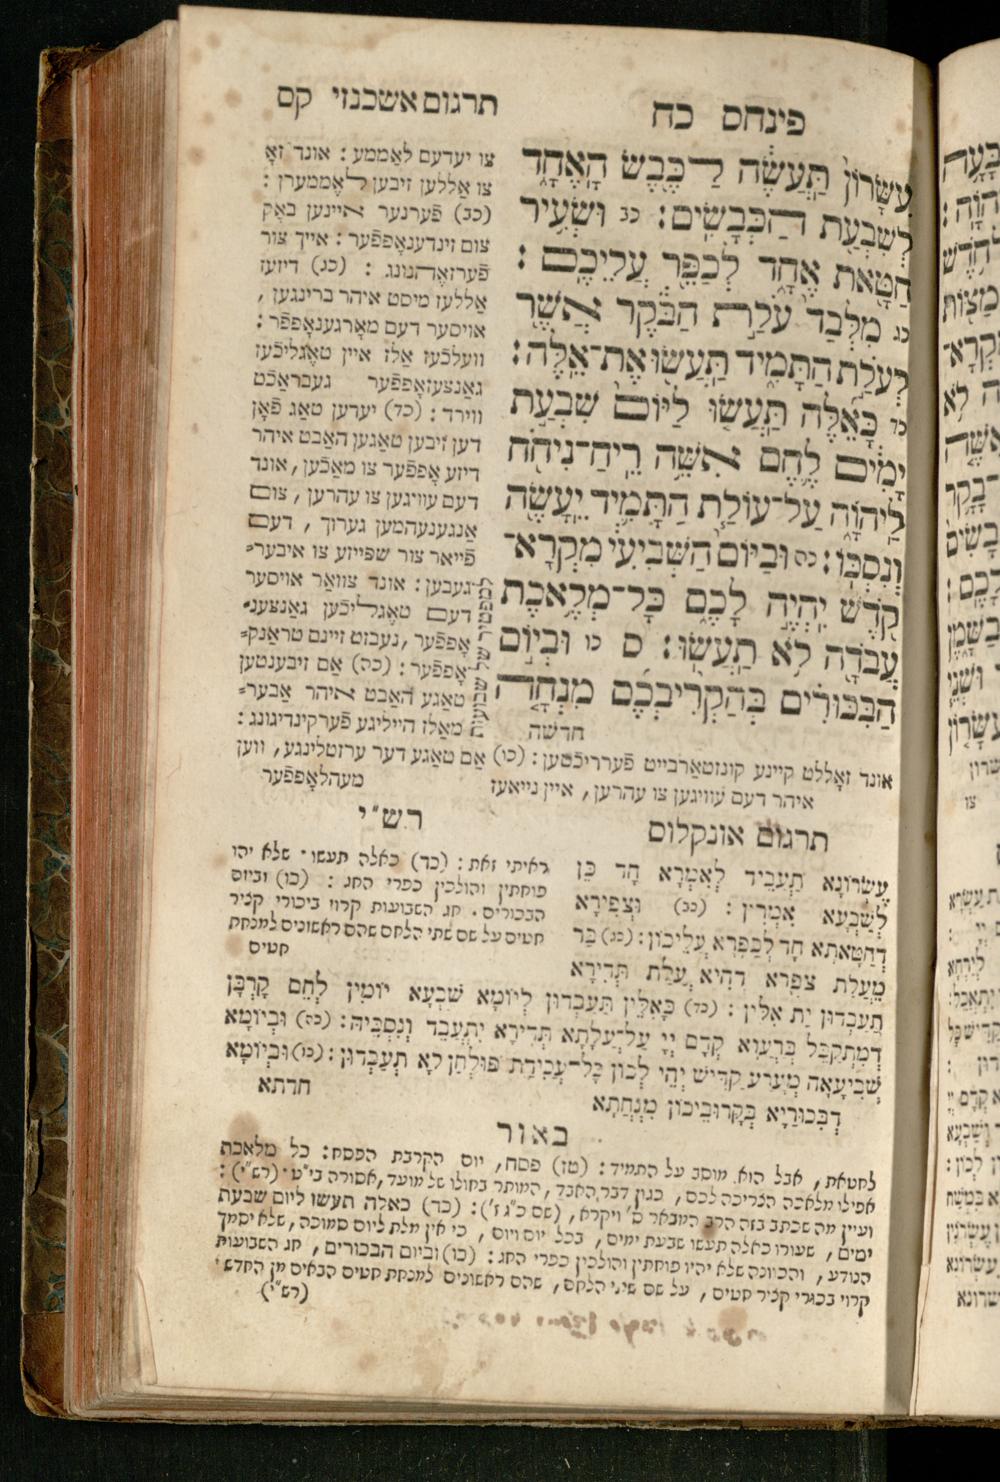 פינחס כח
תרגום אשכנזי קס
עִשָּׂרוֹן תַּעֲשֶׂה לַכֶּבֶשׂ הָאֶחָד
לְשִׁבְעַת הַכְּבָשִׂים׃ כב וּשְׂעִיר
חַטָּאת אֶחָד לְכַפֵּר עֲלֵיכֶם׃
כג מִלְּבַד עֹלַת הַבֹּקֶר אֲשֶׁר
לְעֹלַת הַתָּמִיד תַּעֲשׂוּ אֶת־אֵלֶּה׃
כד כָּאֵלֶּה תַּעֲשׂוּ לַיּוֹם שִׁבְעַת
יָמִים לֶחֶם אִשֵּׁה רֵיחַ־נִיחֹחַ
לַיהוָֹה עַל־עוֹלַת הַתָּמִיד יֵעָשֶׂה
וְנִסְכּוֹ׃ כה וּבַיּוֹם הַשְּׁבִיעִי מִקְרָא־
קֹדֶשׁ יִהְיֶה לָכֶם כָּל־מְלֶאכֶת
עֲבֹדָה לֹא תַעֲשׂוּ׃ ס כו וּבְיוֹם
הַבִּכּוּרִים בְּהַקְרִיבְכֶם מִנְחָה
חדשה
למפטיר של שבועות
צו יעדעם לאַממע׃ אונד זאָ
צו אַללען זיבען לאֶממערן׃
(כב) פֿערנער איינען באָק
צום זינדענאָפּפֿער׃ אייך צור
פֿערזאֶהנונג׃ (כג) דיזעז
אַללעז מיסט איהר ברינגען,
אויסער דעם מאָרגענאָפּפֿר׃
וועלכֿעז אַלז איין טאֶגליכֿעז
גאַנצעזאָפּפֿער געבראַכֿט
ווירד׃ (כד) יעדען טאַג פֿאָן
דען זיבען טאַגען האַבט איהר
דיזע אָפּפֿער צו מאַכֿען, אונד
דעם עוויגען צו עהרען, צום
אַנגענעהמען גערוך, דעם
פֿייאר צור שפּייזע צו איבער־
געבען׃ אונד צוואַר אויסער
דעם טאֶגליכֿען גאַנצען־
אָפּפֿער, נעבזט זיינם טראַנק־
אָפּפֿער׃ (כה) אַם זיבענטען
טאַגע האַבט איהר אַבער־
מאַלז הייליגע פֿערקינדיגונג׃
אונד זאָללט קיינע קונזטאַרבייט פֿערריכֿטען׃ (כו) אַם טאַגע דער ערזטלינגע, ווען
איהר דעם עוויגען צו עהרען, איין נייאעז
מעהלאָפּפֿער
תרגום אונקלוס
עֶשְׂרוֹנָא תַּעְבֵּיד לְאִמְּרָא חָד כֵּן
לְשַׁבְעָא אִמְּרִין׃ (כב) וּצְפִירָא
דְחַטָּאתָא חָד לְכַפָּרָא עֲלֵיכוֹן׃ (כג) בַּר
מֵעֲלַת צַפְרָא דְּהִיא עֲלַת תְּדִירָא
תַּעְבְּדוּן יַת אִלֵּין׃ (כד) כְּאִלֵּין תַּעְבְּדוּן לְיוֹמָא שִׁבְעָא יוֹמִין לְחֵם קָרְבָּן
דְּמִתְקַבַּל בְּרַעֲוָא קֳדָם יְיָ עַל־עֲלָתָא תְּדִירָא יִתְעֲבֵד וְנִסְכֵּיהּ׃ (כה) וּבְיוֹמָא
שְׁבִיעָאָה מְעָרַע קַדִּישׁ יְהֵי לְכוֹן כָּל־עֲבִידַת פּוּלְחַן לָא תַעְבְּדוּן׃ (כו) וּבְיוֹמָא
דְּבִכּוּרַיָּא בְּקָרוֹבֵיכוֹן מִנְחָתָא
חדתא
רש״י
ראיתי זאת׃ (כד) כאלה תעשו. שלא יהו
פוחתין והולכין כפרי החג׃ (כו) וביום
הבכורים. חג השבועות קרוי ביכורי קציר
חטים על שם שתי הלחם שהם ראשונים למנחת
חטים
באור
לחטאת, אבל הוא מוסב על התמיד׃ (טז) פסח, יום הקרבת הפסח׃ כל מלאכת
אפילו מלאכה הצריכה לכם, כגון דבר האבד, המותר בחולו של מועד, אסורה בי״ט. (רש״י)׃
ועיין מה שכתב בזה הרב המבאר ס׳ ויקרא, (שם כ״ג ז׳)׃ (כד) כאלה תעשו ליום שבעת
ימים, שעורו כאלה תעשו שבעת ימים, בכל יום ויום, כי אין מלת ליום סמוכה, שלא יסמך
הנודע, והכוונה שלא יהיו פוחתין והולכין כפרי החג׃ (כו) וביום הבכורים, חג השבועות
קרוי בכורי קציר חטים, על שם שיני הלחם, שהם ראשונים למנחת חטים הבאים מן החדש.
(רש״י)